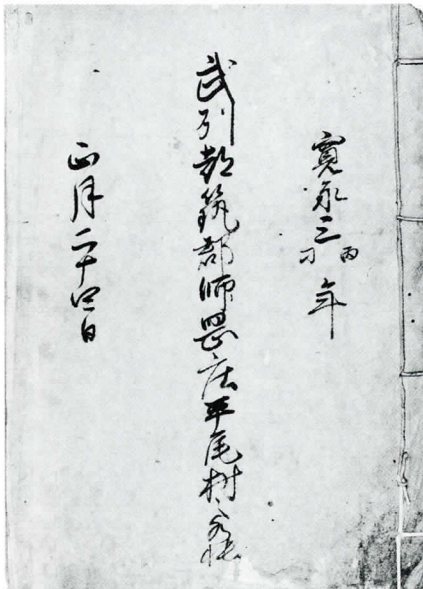 寛永三丙刁年
武州都筑郡師罡庄平尾村水帳
正月二十四日